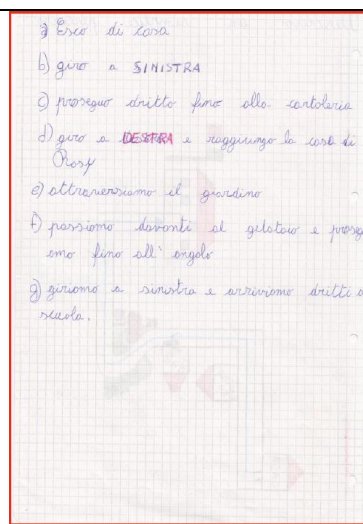 a) Esco di casa
b) giro a SINISTRA
c) proseguo dritto fino alla cartoleria
d) giro a DESTRA e raggiungo la casa di
Rosy
e) attraversiamo il giardino
f) passiamo davanti al gelataio e proseg
amo fino all'angolo
g) giriamo a sinistra e arriviamo dritti a
scuola.